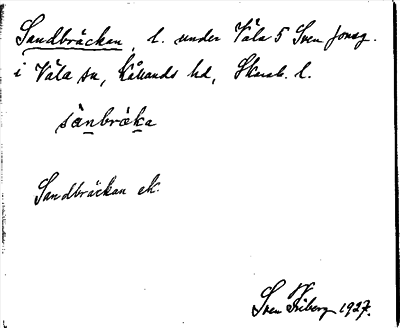 Sandbräckan, l. under Väla 5 Sven Jonsg.
i Väla sn, Kållands hd, Skarab. l.
sànbràka
Sandbräckan ek.
Sven Friberg 1927.